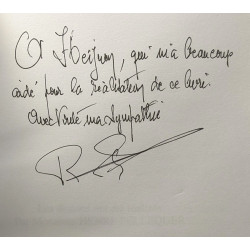 A
qui m'a beaucoup
aidé pour la réalisation de ce livre.
Avec toute ma Sympathie